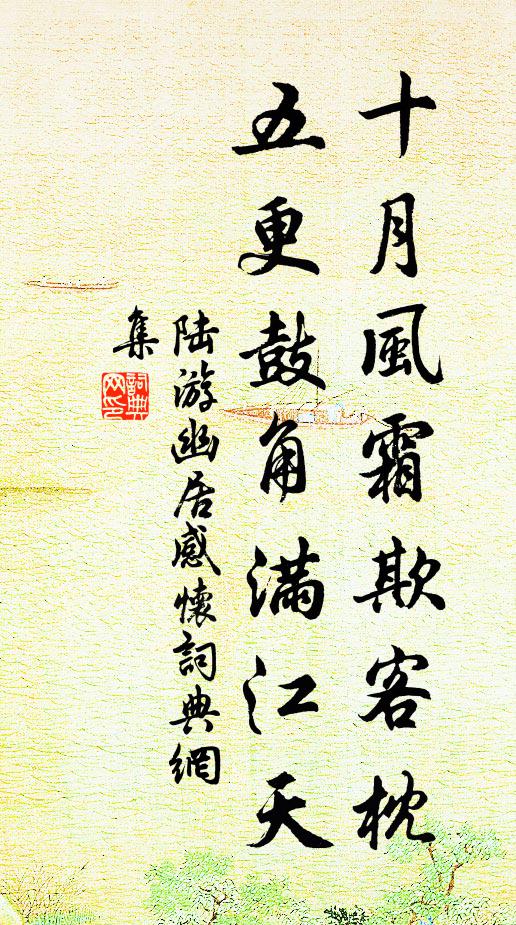 十月風霜欺客枕
五更鼓角滿江天
陆游幽居感懷詞典網
集
詞典
网印